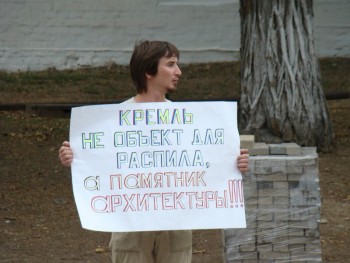 КРЕМЛЬ
НЕ ОБЪЕКТ ДЛЯ
РАСПИЛА,
А ПАМЯТНИК
АРХИТЕКТУРЫ!!!